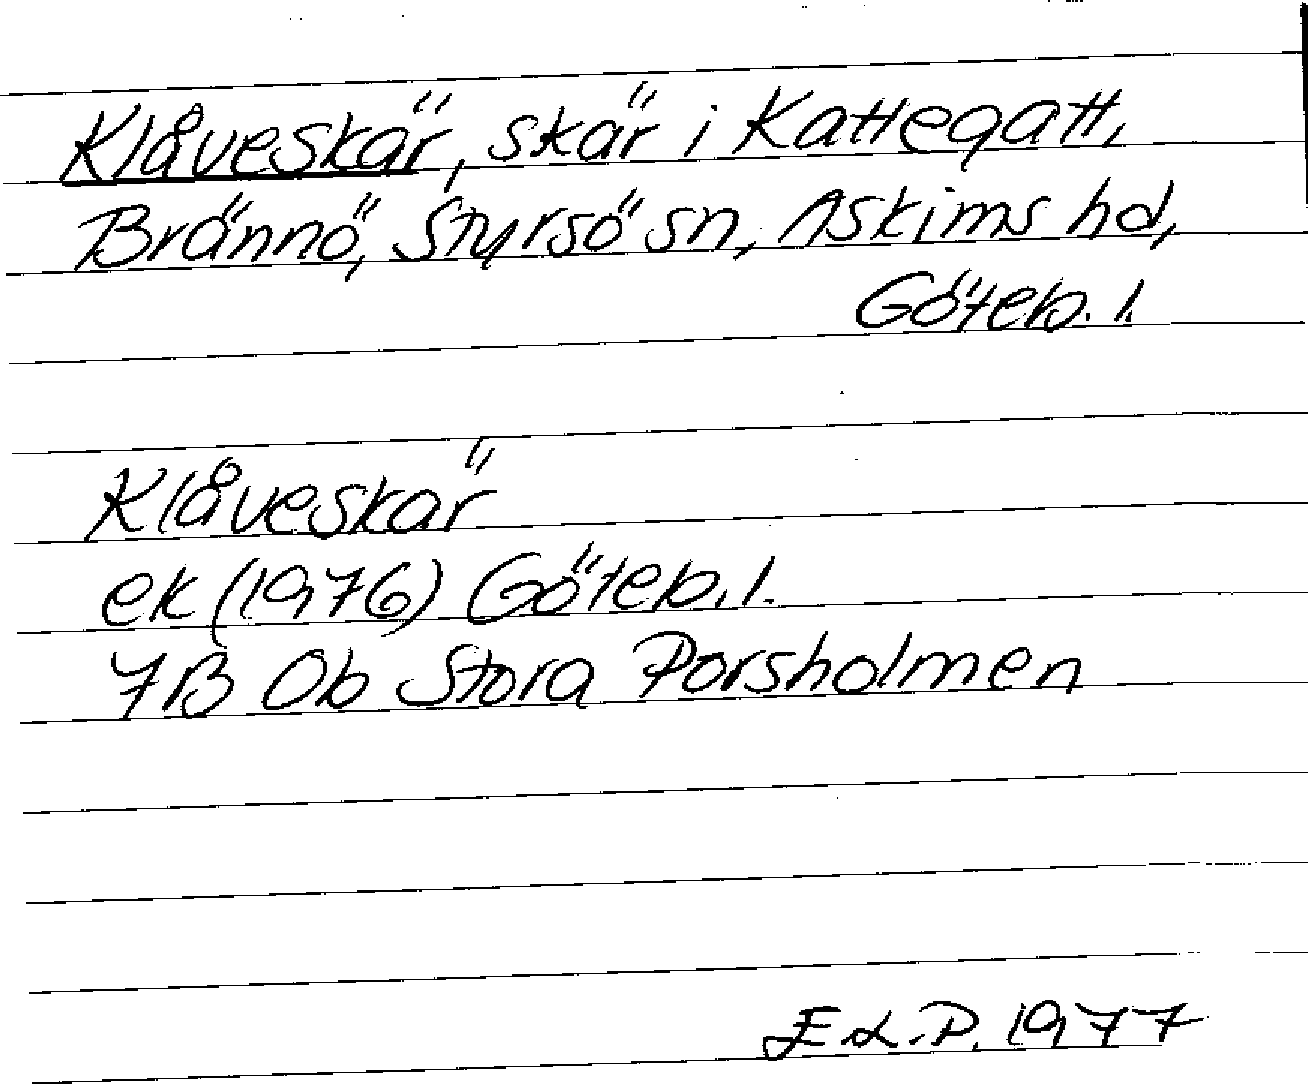 Klåveskär, skär i Kattegatt,
Brännö, Styrsö sn, Askims hd,
Göteb. l.
Klåveskär
ek (1976) Göteb. l.
7B 0b Stora Porsholmen
E.L.P. 1977